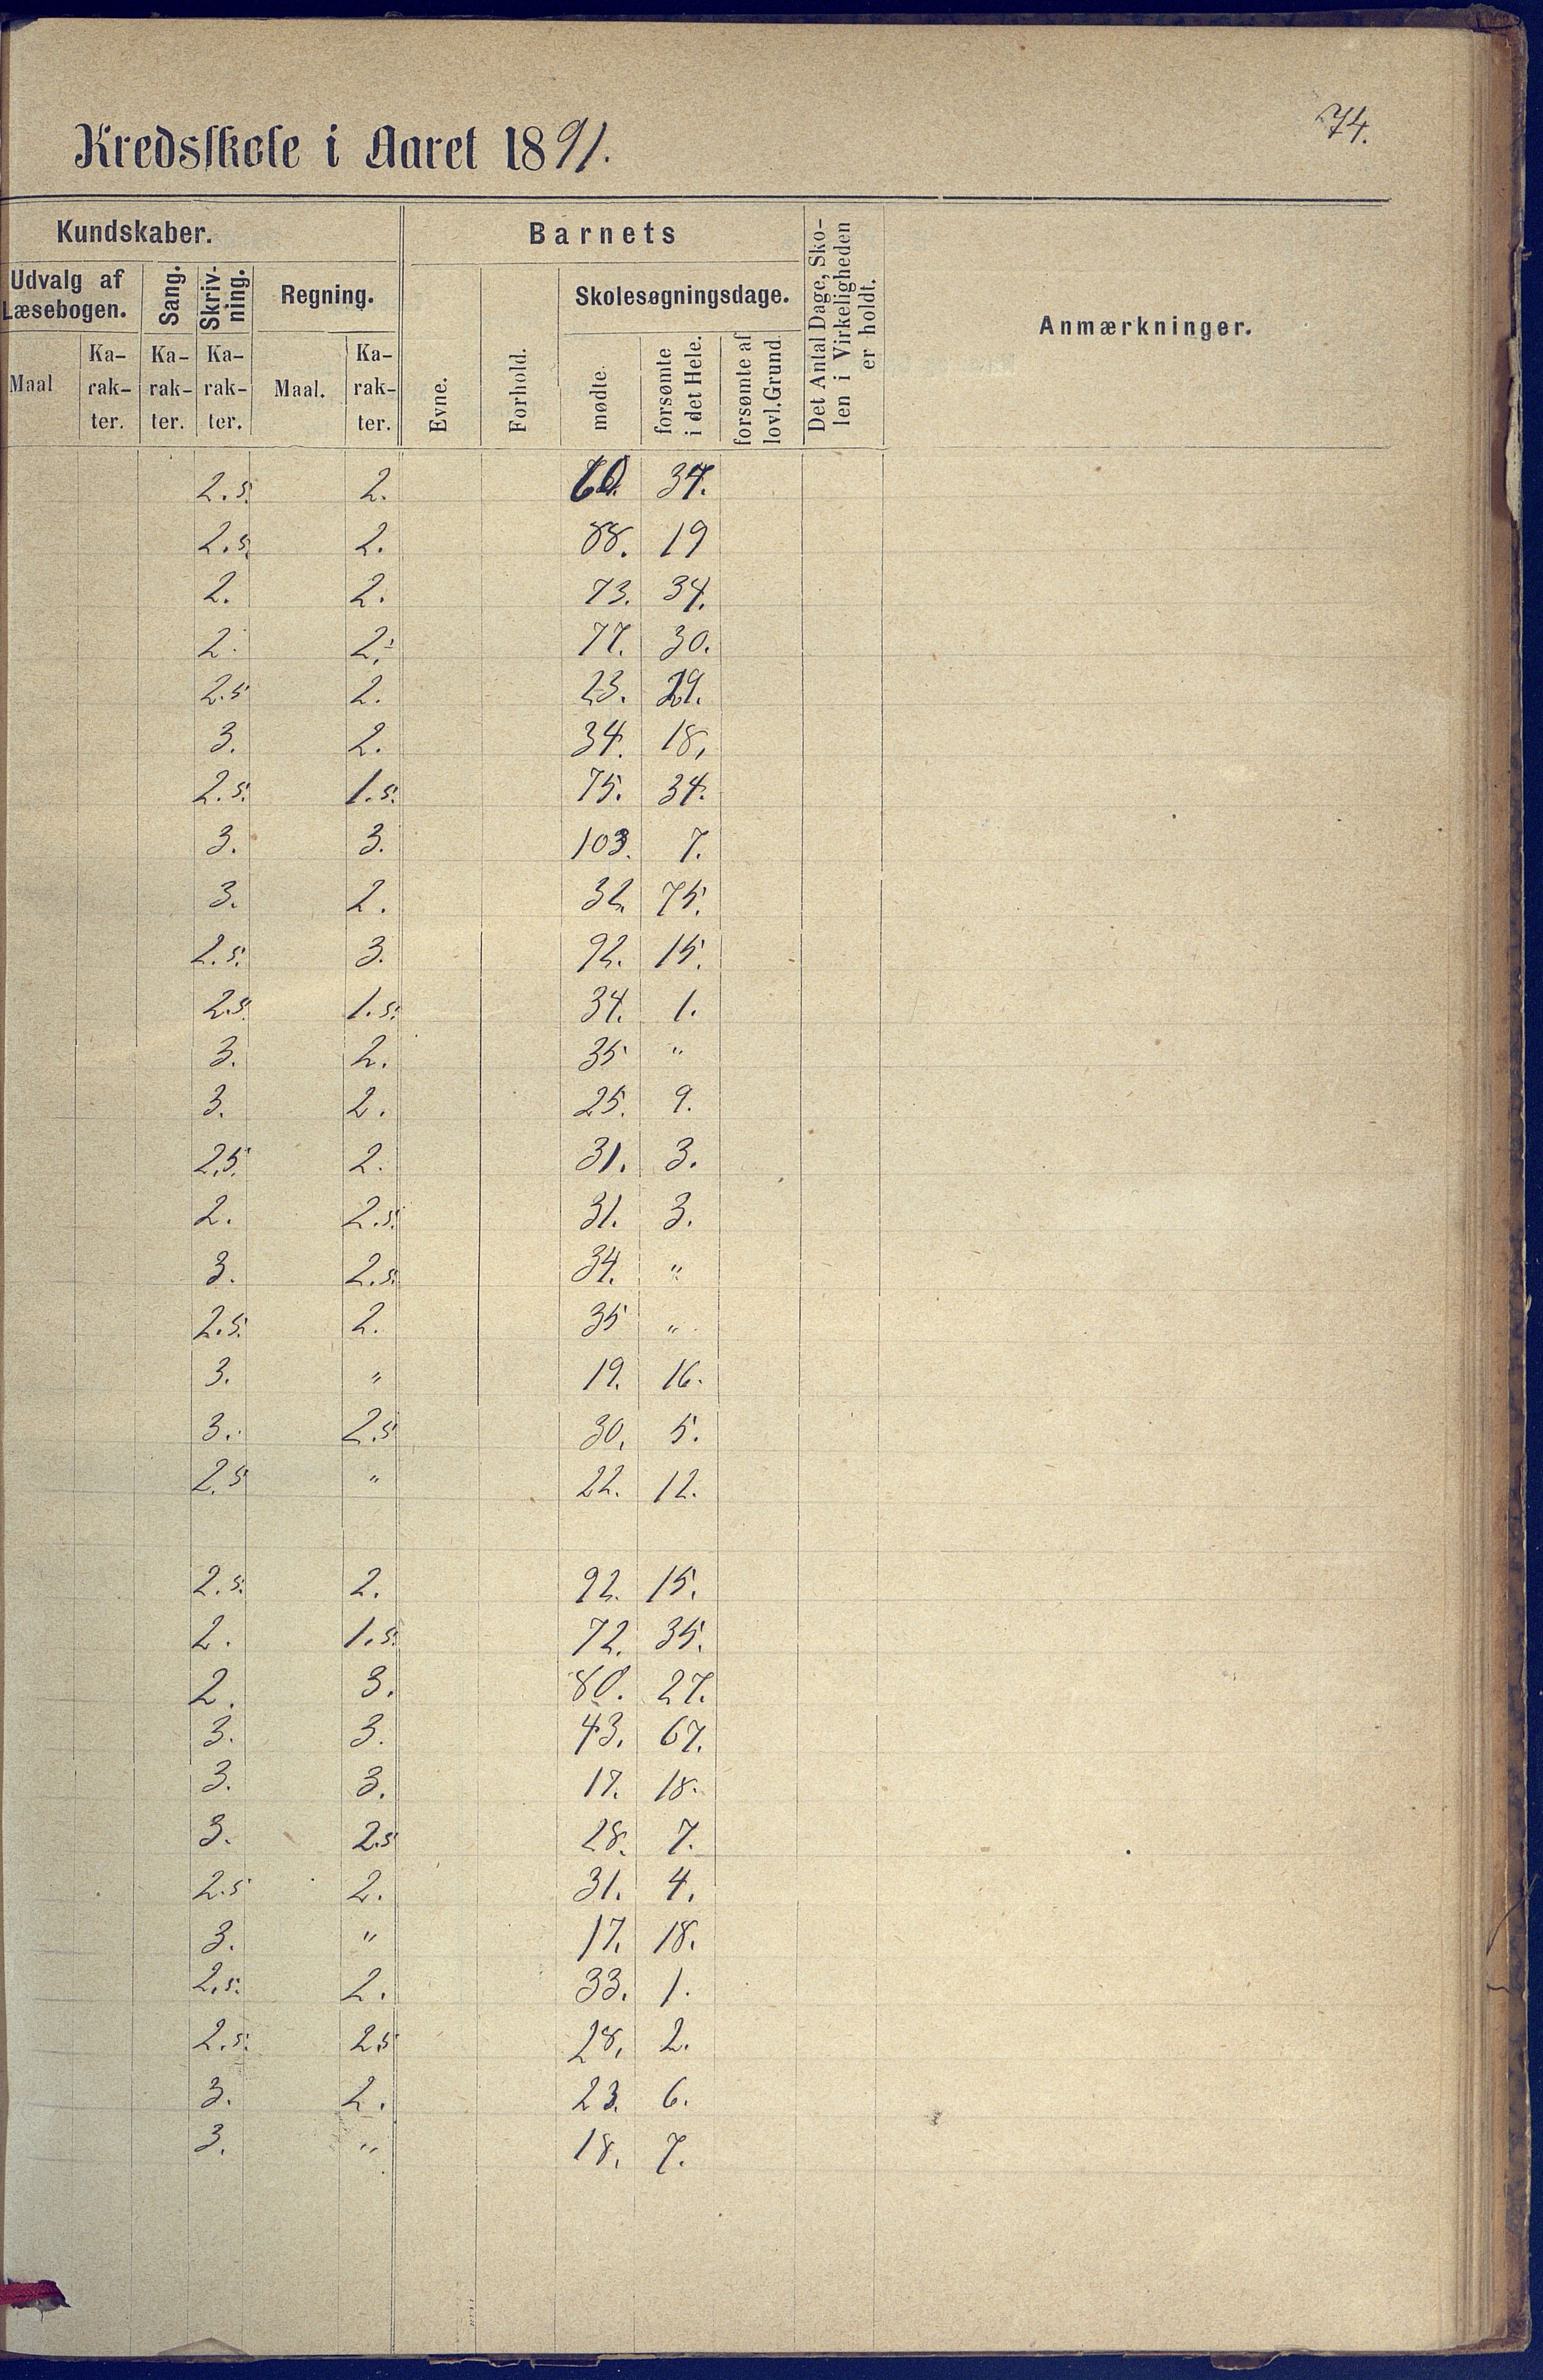 74.
Kredsskole i Aaret 1891.
Kundskaber.
Barnets
Det Antal Dage, Sko-
len i Virkeligheden
er holdt.
Anmærkninger.
Udvalg af
Læsebogen.
Sang.
Skriv-
ning.
Regning.
Evne.
Forhold.
Skolesøgningsdage.
Maal
Ka-
rak-
ter.
Ka-
rak-
ter.
Ka-
rak-
ter.
Maal.
Ka-
rak-
ter.
mødte.
forsømte
i det Hele.
forsømte af
lovl. Grund.
2.5. 2. 37.
2.5. 2. 88. 19
2. 2. 73. 34.
2. 2. 77. 30.
2.5 2. 23. 29.
3. 2. 34. 18.
2.5. 1.5. 75. 34.
3. 3. 103. 7.
3. 2. 32 75.
2.5. 3. 92. 15.
2.5. 1.5. 34. 1.
3. 2. 35 "
3. 2. 25. 9.
2.5. 2. 31. 3.
2. 2.5. 31. 3.
3. 2.5. 34. "
2.5. 2. 35 "
3. " 19. 16.
3. 2.5 30. 5.
2.5 " 22. 12.
2.5. 2. 92. 15.
2. 1.5. 72. 35.
2. 3. 80. 27.
3. 3. 43. 67.
3. 3. 17. 18.
3. 2.5 28. 7.
2.5 2. 31. 4.
3. " 17. 18.
2.5. 2. 33. 1.
2.5. 2.5 28. 2.
3. 2. 23. 6.
3. " 18. 7.